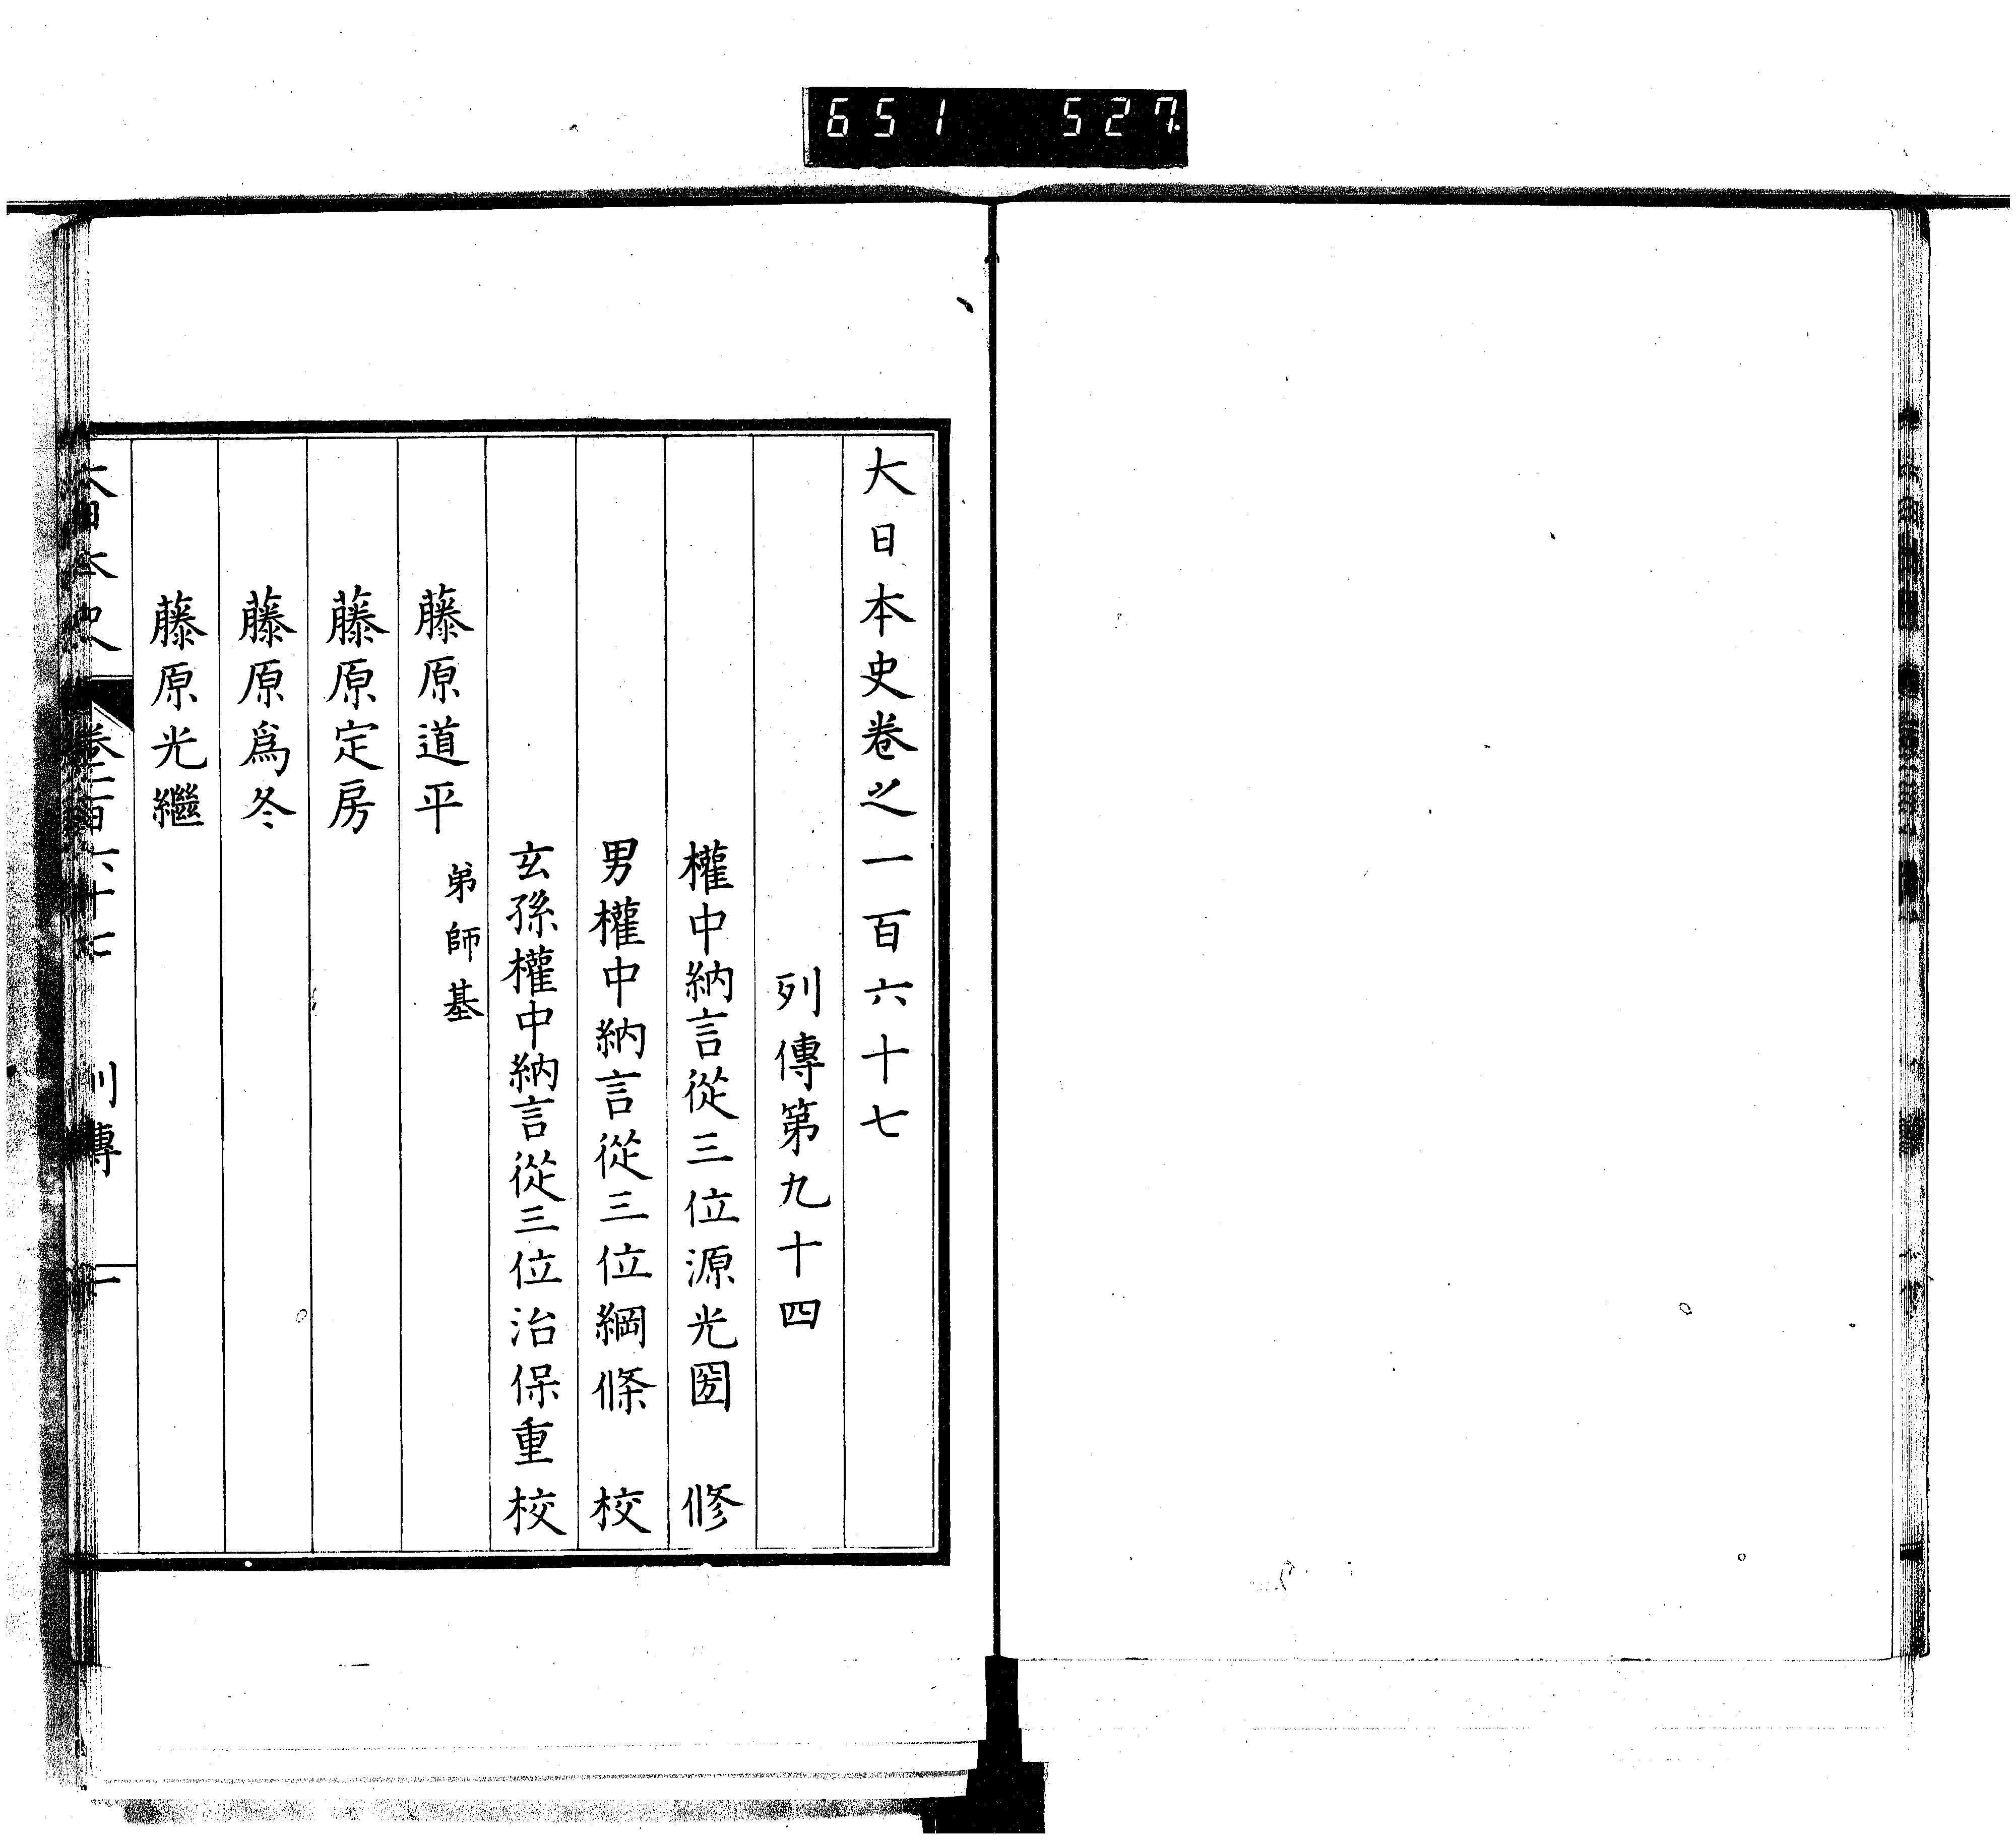 651 527
大日本史卷之一百六十七
列傳第九十四
權中納言從三位源光圀 修
男權中納言從三位綱條 校
玄孫權中納言從三位治保重校
藤原道平 弟師基
藤原定房
藤原爲冬
藤原光繼
大日本史 卷一百六十七 列傳 一